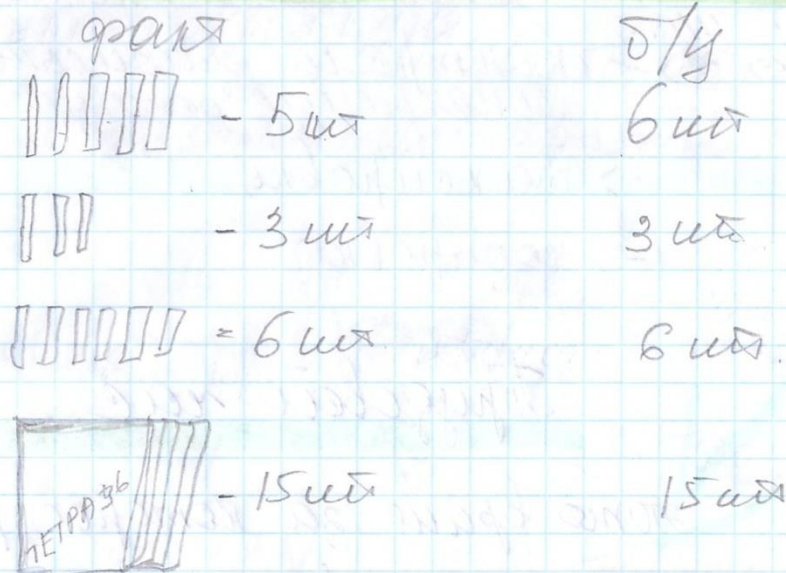 факт б/у
- 5 шт 6 шт
- 3 шт 3 шт
= 6 шт 6 шт.
ТЕТРАЗЬ - 15 шт 15 шт